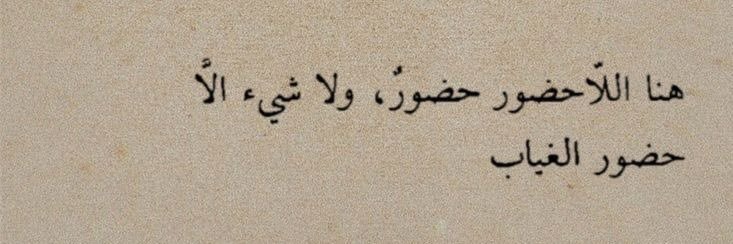 هنا اللّاحضور حضورٌ، ولا شيء الاَّ
حضور الغياب